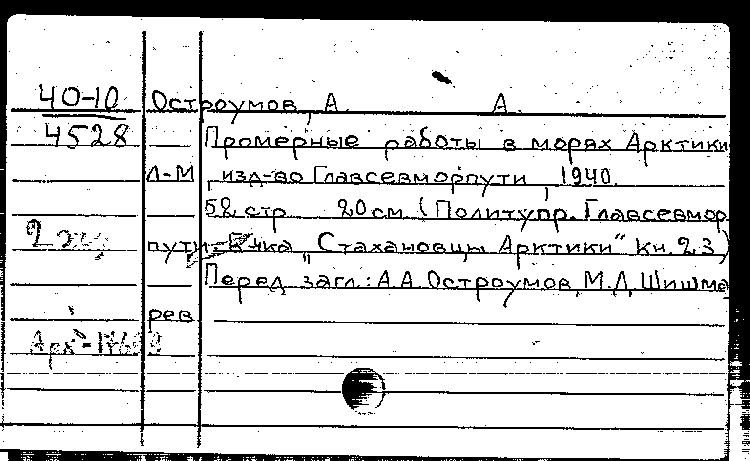 40-10 Остроумов, А. А.
4528 Промерные работы в морях Арктики
Л-М, изд-во Главсевморпути, 1940.
52 стр 20 см (Политупр. Главсевмор
2 пути. Б-чка „Стахановцы Арктики" Кн. 23)
Перед загл.: А.А. Остроумов, М.Л. Шишма
рев
Арх-